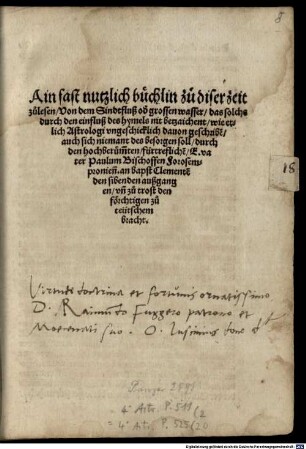 8
Ain fast nutzlich büchlin zů diser zeit
zůlesen/Von dem Sindtfluß oď grossen wasser/das solchs
durch den einfluß des hymels nit betzaichent/wie etz
lich Astrologi vngeschicklich dauon geschribẽ/
auch sich niemant des besorgen soll/durch
den hochberůmtẽ/fürtreflichẽ/E. va
ter Paulum Bischoffen Forosem-
pronieñ. an bapst Clementẽ
den sibenden außgang
en/vñ zů trost den
förchtigen zů
teütschem
bracht.
18
Virtute doctrina et fortunis ornatissimo
D. Raimundo Fuggero patrono et
Moecenati suo. O. Lusinius
Panzer 2581
4° Astr. P. 511
= 4° Astr. P. 525 (20